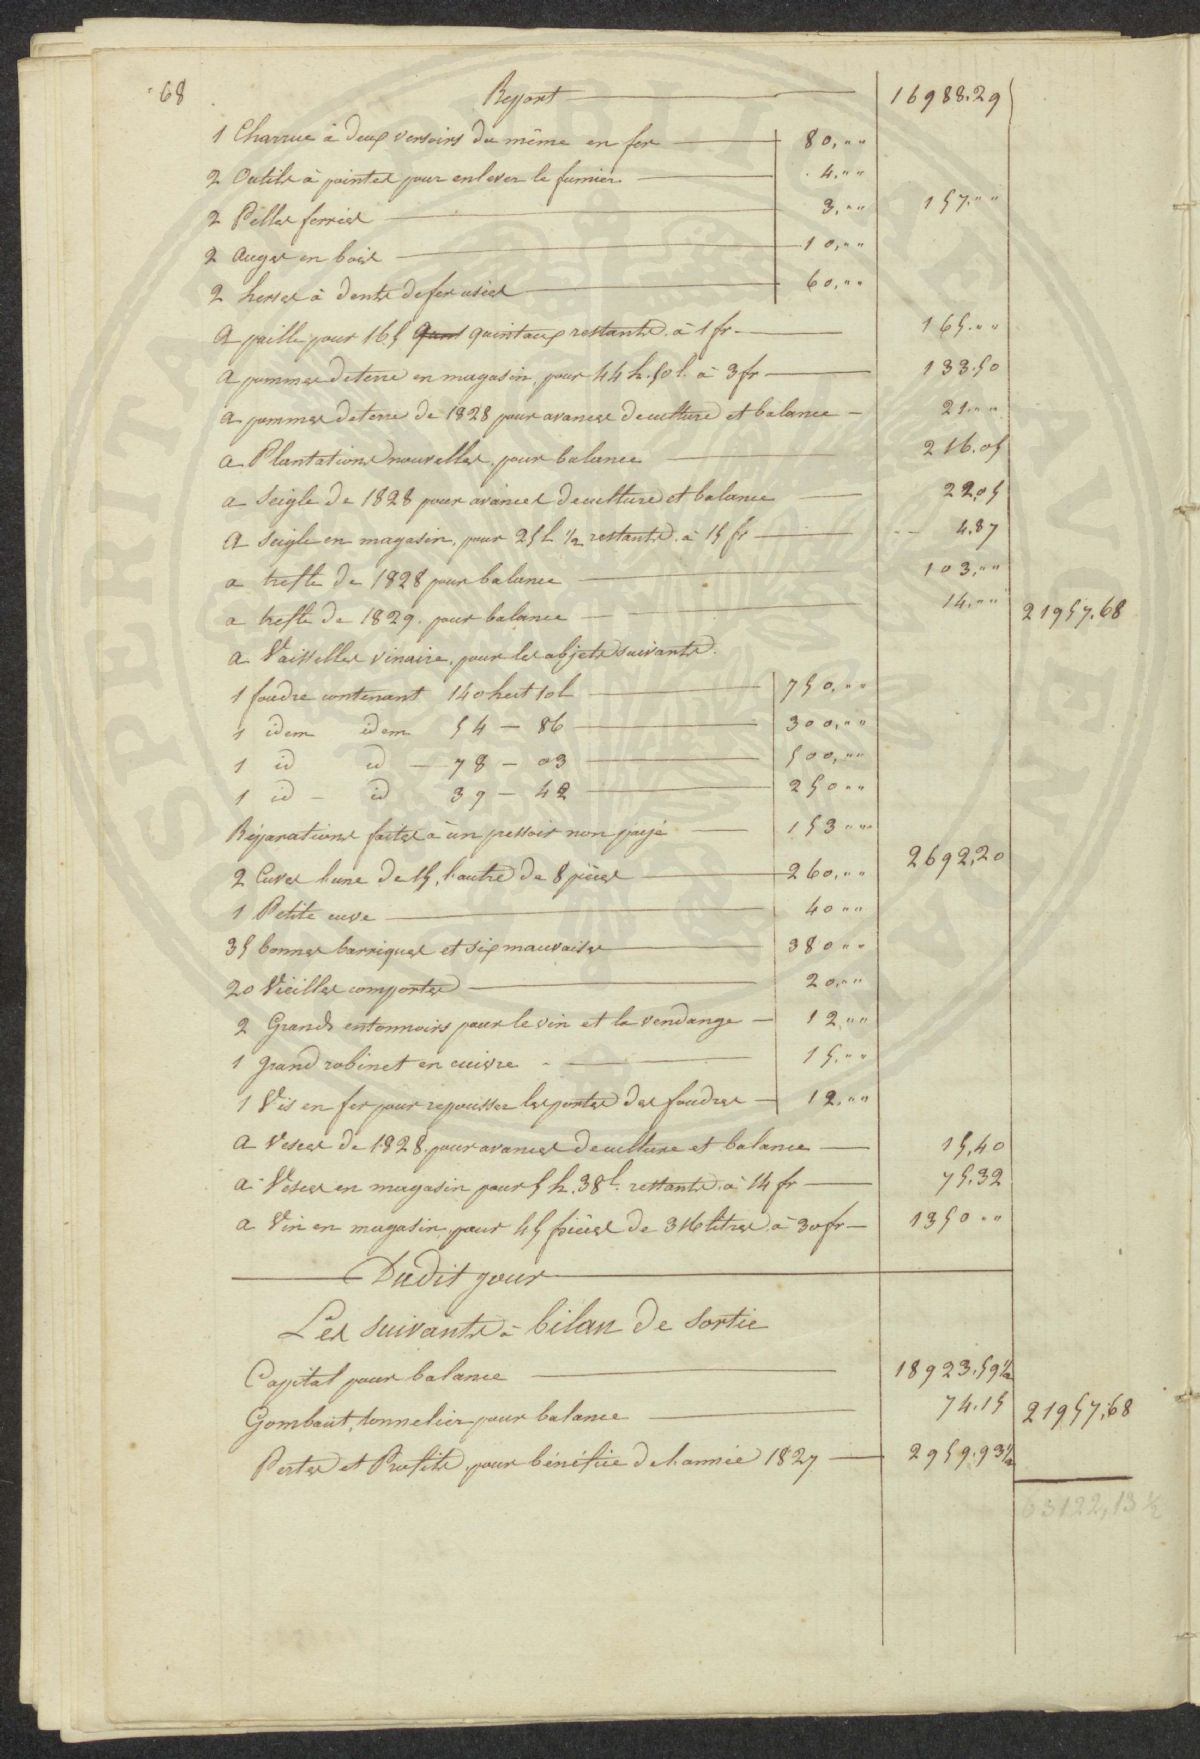 68
Report 16988.29
1 Charrue à deux versoirs du même en fer 80,,,
2 Outils à pointes pour enlever le fumier 4,,,
2 Pelles ferrées 3,,, 157,,,
2 auges en bois 10,,,
2 herses à dents de fer usées 60,,,
a paille pour 165 quintaux restants à 1 fr 165,,,
a pommes de terre en magasin, pour 44 h. 50 l. à 3 fr 133.50
a pommes de terre de 1828 pour avances de culture et balance 21,,,
a Plantations nouvelles, pour balance 216.05
a Seigle de 1828 pour avances de culture et balance 22,05
a Seigle en magasin, pour 25 l ½ restants à 15 fr 4.87
a trefle de 1828 pour balance 103,,,
a trefle de 1829. pour balance 14,,, 21957.68
a Vaisselles vinaire, pour les objets suivants.
1 foudre contenant 140 hect 10 l 750,,,
1 idem idem 54 - 86 300,,,
1 id id - 78 - 03 500,,,
1 id - id 39 - 42 250,,
Réparations faites à un pressoir non payé 153,,,
2692,20
2 Cuves l'une de 15, l'autre de 8 pièces 260,,,
1 Petite cuve 40,,,
35 bonnes barriques et six mauvaises 380,,,
20 Vieilles comportes 20,,,
2 Grands entonnoirs pour le vin et la vendange 12,,,
1 grand robinet en cuivre 15,,,
1 Vis en fer pour repousser les portes des foudres 12,,,
a Vesces de 1828, pour avances de culture et balance 15,40
a Vesces en magasin pour 5 h. 38 l. restants à 14 fr 75,32
a Vin en magasin, pour 45 pièces de 316 litres à 30 fr 1350,,
Dudit jour
Les suivants à bilan de sortie
Capital pour balance 18923.59½
Gombaut, tonnelier pour balance 74.15 21957,68
Pertes et Profits, pour bénéfice de l'année 1827 2959.93½
63122,13 ½